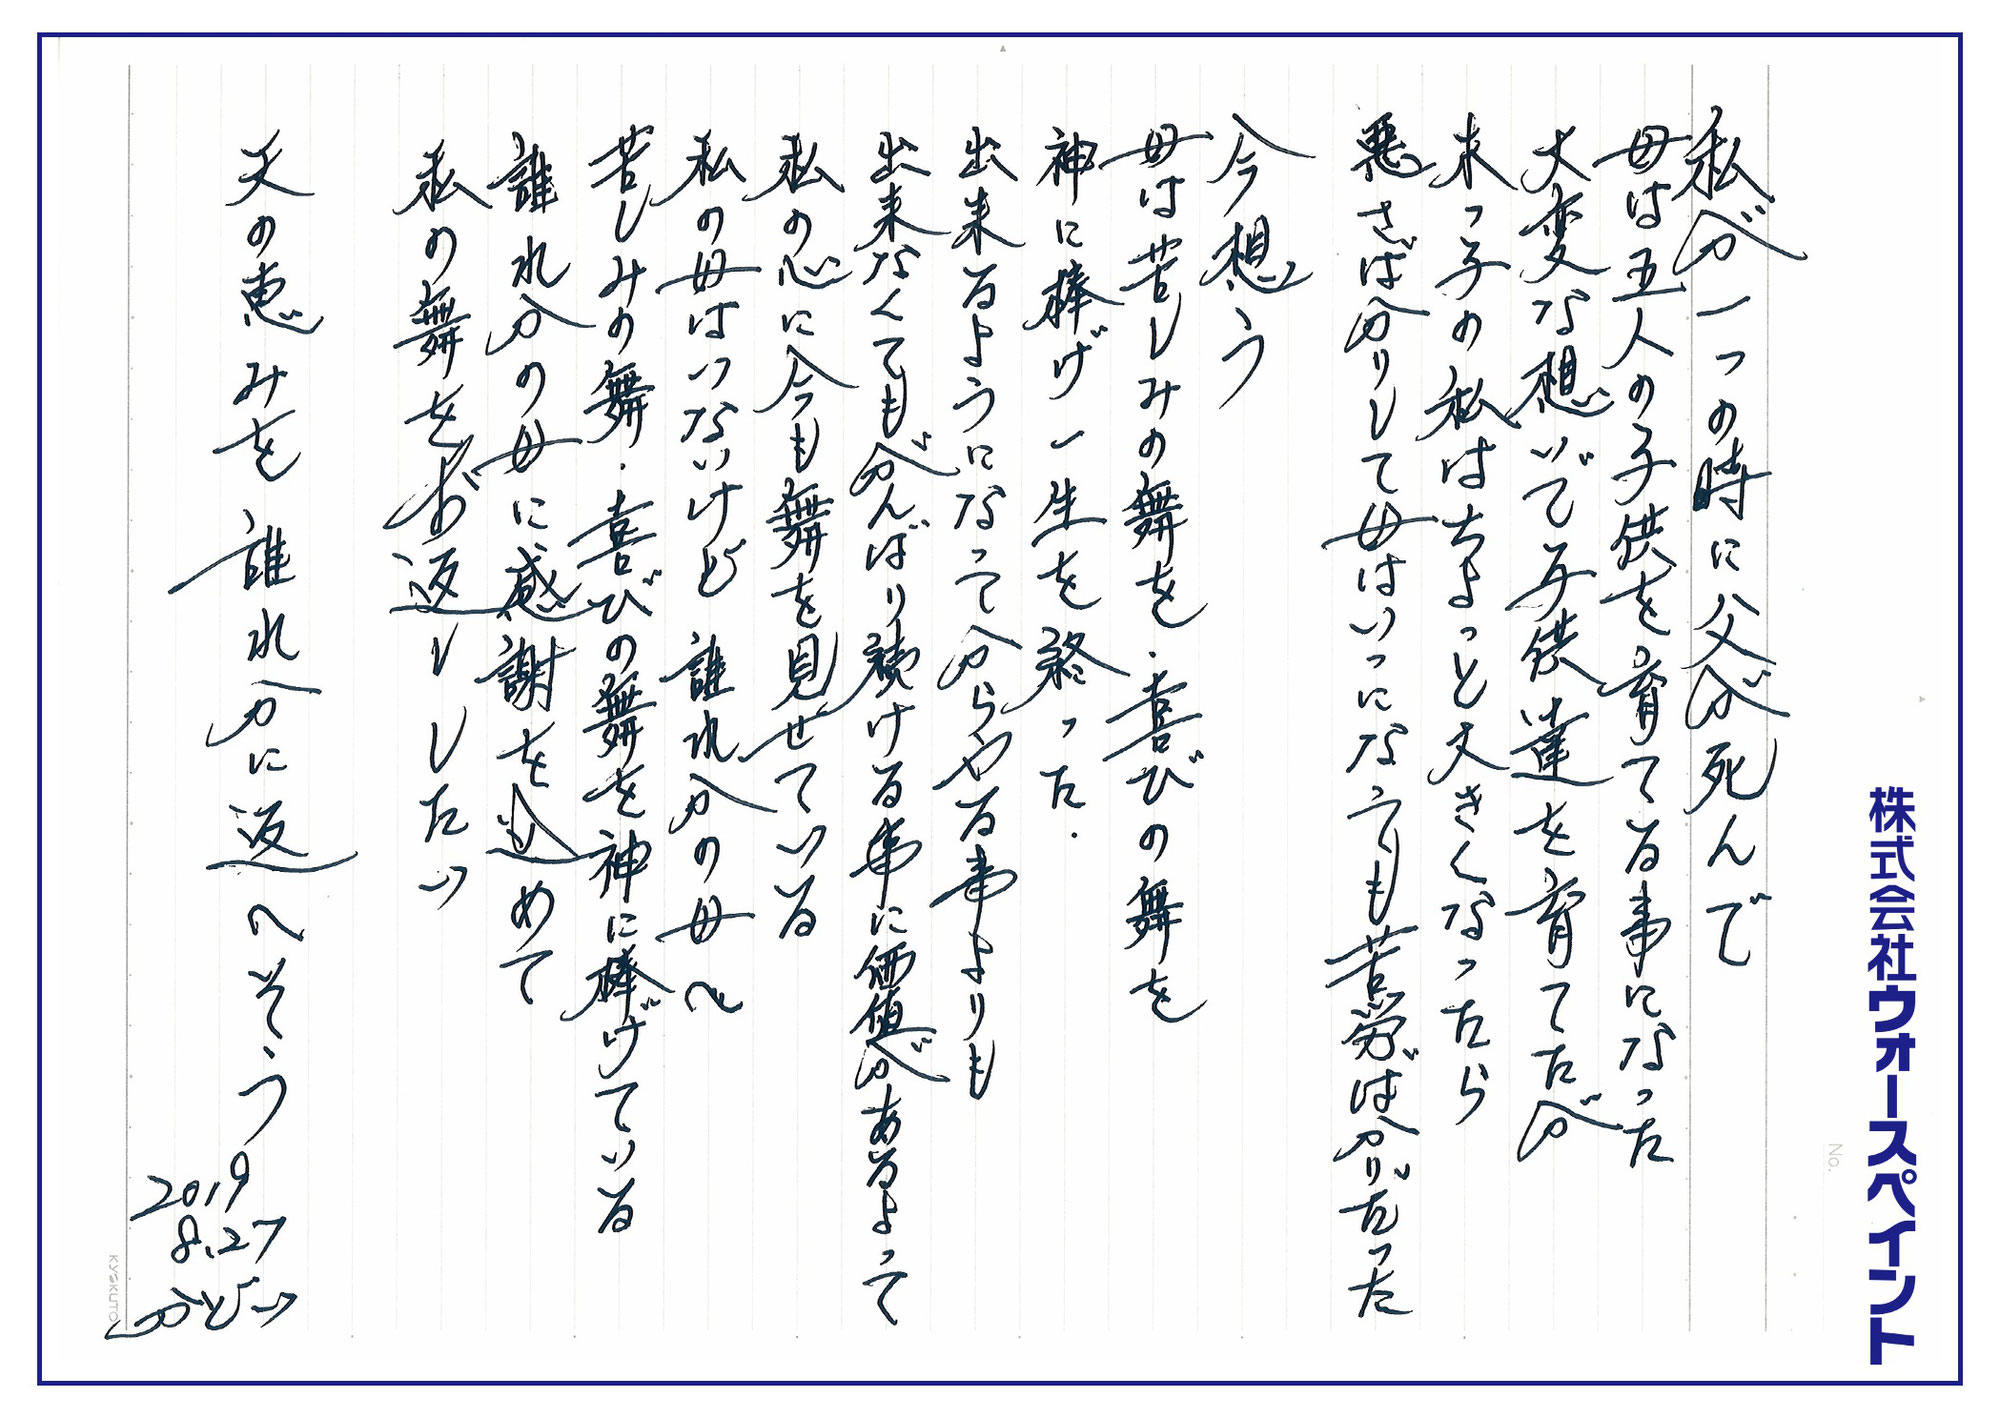 株式会社ウォースペイント
No.
私が一つの時に父が死んで
母は五人の子供を育てる事になった
大変な想いで子供達を育てたが
末っ子の私はちょっと大きくなったら
悪さばかりして母はいつになっても苦労ばかりだった
今想う
母は苦しみの舞を・喜びの舞を
神に捧げ一生を終った.
出来るようになってからやる事よりも
出来なくてもがんばり続ける事に価値があるよって
私の心に今も舞を見せている
私の母はいないけど誰れかの母へ
苦しみの舞・喜びの舞を神に捧げている
誰れかの母に感謝を込めて
私の舞をお返ししたい
天の恵みを 誰れかに返へそう
2019
8.27
KYOKUTO